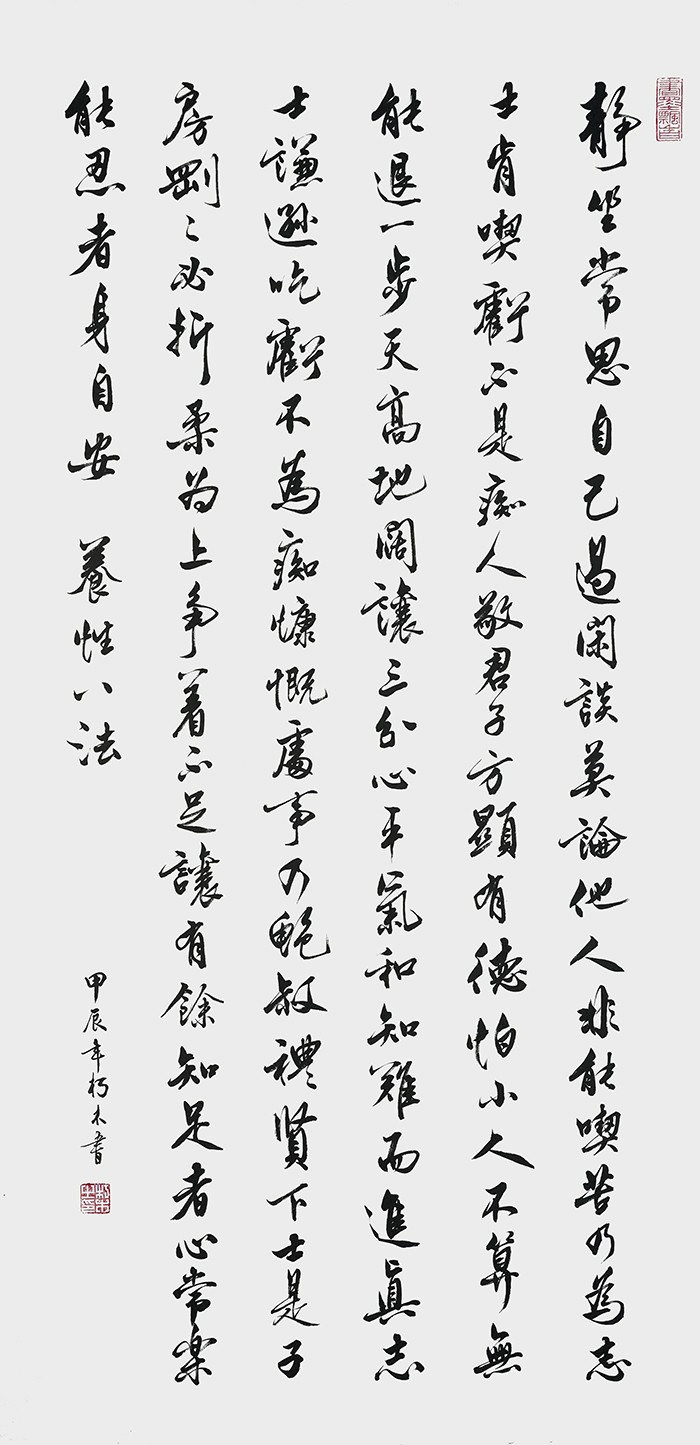 靜坐常思自己過閑談莫論他人非能喫苦乃為志
士肯喫虧不是痴人敬君子方顯有德怕小人不算無
能退一步天高地闊讓三分心平氣和知難而進真志
士謙遜吃虧不為痴慷慨處事乃鮑叔禮賢下士是子
房剛〻必折柔為上爭着不足讓有餘知足者心常樂
能忍者身自安 養性八法
甲辰年朽木書